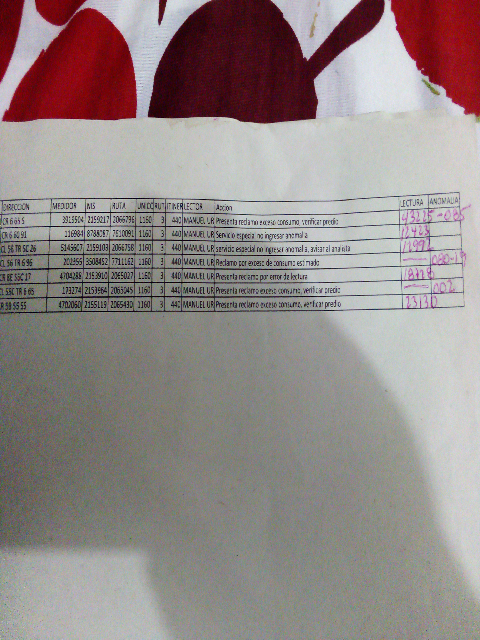 DIRECCIÓN MEDIDOR NIS RUTA UNICO RUT ITINER LECTOR Accion LECTURA ANOMALIA
CR 6 65 5 3915504 2159217 2066796 1160 3 440 MANUEL UR Presenta reclamo exceso consumo, verificar predio 43225 - 085
CR 6 60 91 116984 8788087 7610091 1160 3 440 MANUEL UR Servicio especial no ingresar anomalia 12423
CL 56 TR 5C 26 5145607 2159103 2066758 1160 3 440 MANUEL UR servicio especial no ingresar anomalia, avisar al analista 11992
CL 56 TR 6 96 202355 3508452 7711162 1160 3 440 MANUEL UR Reclamo por exceso de consumo estimado — 080-19
CR 6E 55C 17 4704286 2153910 2065027 1160 3 440 MANUEL UR Presenta reclamo por error de lectura 18778
CL 55C TR 6 65 173274 2153964 2065045 1160 3 440 MANUEL UR Presenta reclamo exceso consumo, verificar predio — 002
CR 5B 55 55 4702060 2155119 2065430 1160 3 440 MANUEL UR Presenta reclamo exceso consumo, verificar predio 23130